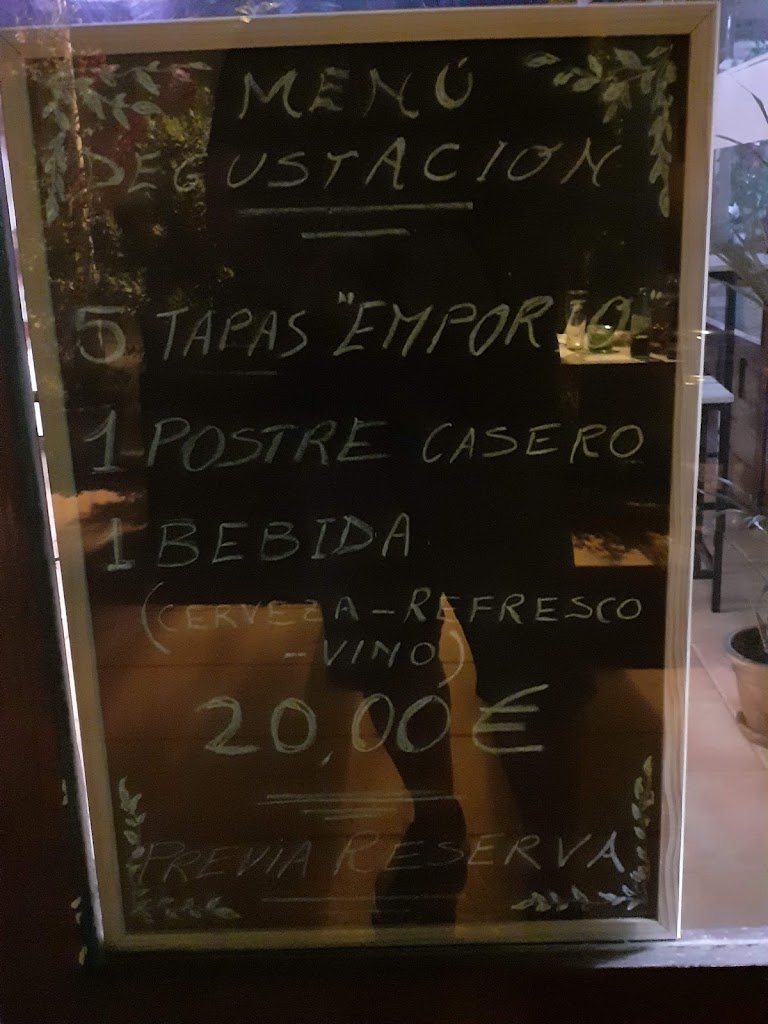 MENÚ
DEGUSTACION
5 TAPAS "EMPORIO"
1 POSTRE CASERO
1 BEBIDA
(CERVEZA - REFRESCO
- VINO)
20,00 €
PREVIA RESERVA